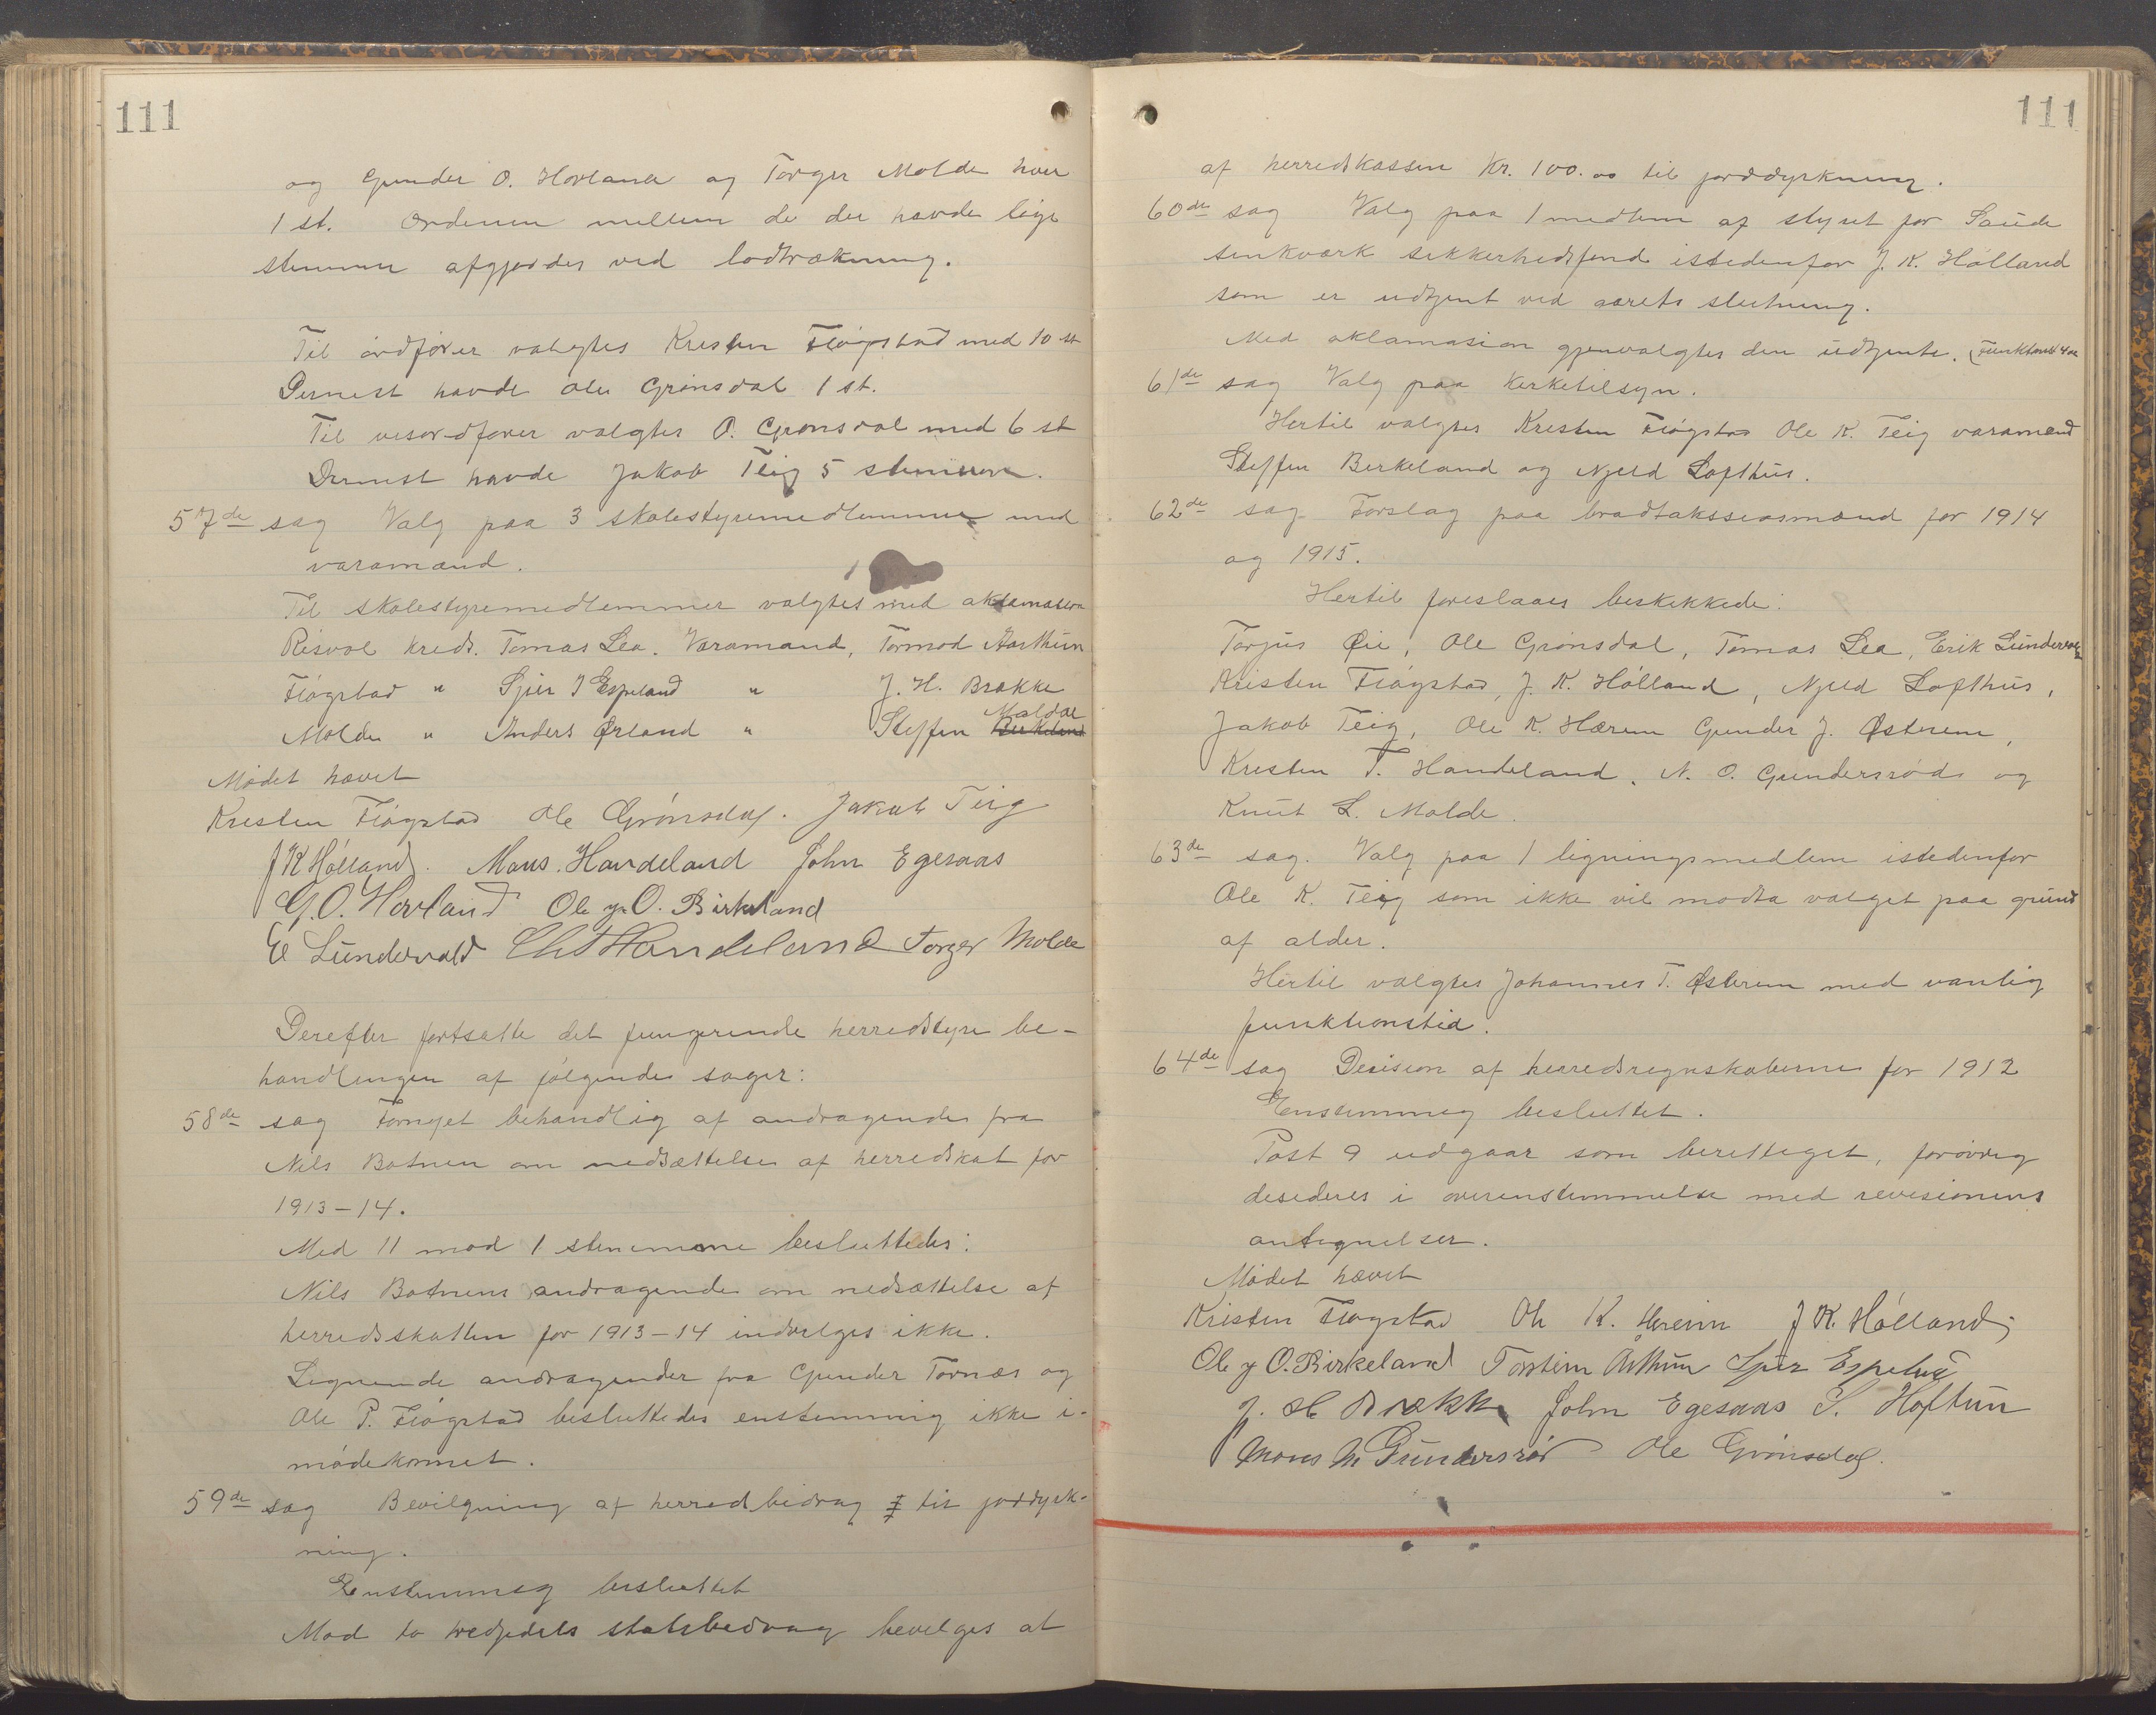 111
og Gunder O. Hovland og Torger Molde hver
1 st. Ordenen mellem de der havde lige
stemmer afgjordes ved lodtrækning.
Til ordfører valgtes Kristen Fløgstad med 10 st
Dernest havde Ole Grønsdal 1 st.
Til viseordfører valgtes O. Grønsdal med 6 st
Dernest havde Jakob Teig 5 stemmer.
57de sag Valg paa 3 skolestyremedlemmer med
varamænd.
Til skolestyremedlemmer valgtes med aklamasion
Risvol kreds. Tomas Lea. Varamand, Tormod Aarthun
Fløgstad " Sjur J Espeland " J. H. Brække
Molde " Anders Ørland " Steffen Birkeland Maldal
Mødet hævet
Kristen Fløgstad Ole Grønsdal. Jakob Teig
J K Hølland. Mons. Handeland John Egesaas
G. O. Hovland Ole g. O. Birkeland
E Lundervold Chr Handeland Torger Molde
Derefter fortsatte det fungerende herredstyre be-
handlingen af følgende sager:
58de sag Fornyet behandlig af andragende fra
Nils Botnen om nedsættelse af herredskat for
1913-14.
Med 11 mod 1 stemmme besluttedes:
Nils Botnens andragende om nedsættelse af
herredsskatten for 1913-14 indvilges ikke.
Lignende andragender fra Gunder Tornæs og
Ole P. Fløgstad besluttedes enstemmig ikke i-
mødekommet.
59de sag Bevilgning af herredbidrag til jorddyrk-
ning.
Enstemmig besluttet
Mod to tredjedels statsbidrag bevilges at
111
af herredskassen Kr. 100.00 til jorddyrkning.
60de sag Valg paa 1 medlem af styret for Saude
sinkværk sikkerhedsfond istedenfor J. K. Hølland
som er udtjent ved aarets slutning.
Med aklamasion gjenvalgtes den udtjente. (Funktionst 4 aar
61de sag Valg paa Kirketilsyn.
Hertil valgtes Kristen Fløgstad Ole K. Teig varamænd
Steffen Birkeland og Njeld Lofthus.
62de sag Forslag paa bradtaksseasmænd for 1914
og 1915.
Hertil foreslaaes beskikkede:
Torjus Øie, Ole Grønsdal, Tomas Lea, Erik Lundervold
Kristen Fløgstad, J. K. Hølland, Njeld Lofthus,
Jakob Teig, Ole K. Hærem Gunder J. Østerem,
Kristen T. Handeland, N. O. Gundersrød og
Knut L. Molde.
63de sag. Valg paa 1 ligningsmedlem istedenfor
Ole K. Teig som ikke vil modta valget paa grund
af alder.
Hertil valgtes Johannes T. Østerem med vanlig
funktionstid.
64de sag Desision af herredsregnskaberne for 1912
Enstemmig besluttet.
Post 9 udgaar som berettiget, forøvrig
desideres i overenstemmelse med revisionens
antegnelser.
Mødet hævet
Kristen Fløgstad Ole K. Hereim J K. Hølland
Ole g O. Birkeland Torstein Arthun Sjur Espeland
J. H Brække John Egesaas S. Hoftun
Mons M Gundersrød Ole Grønsdal.